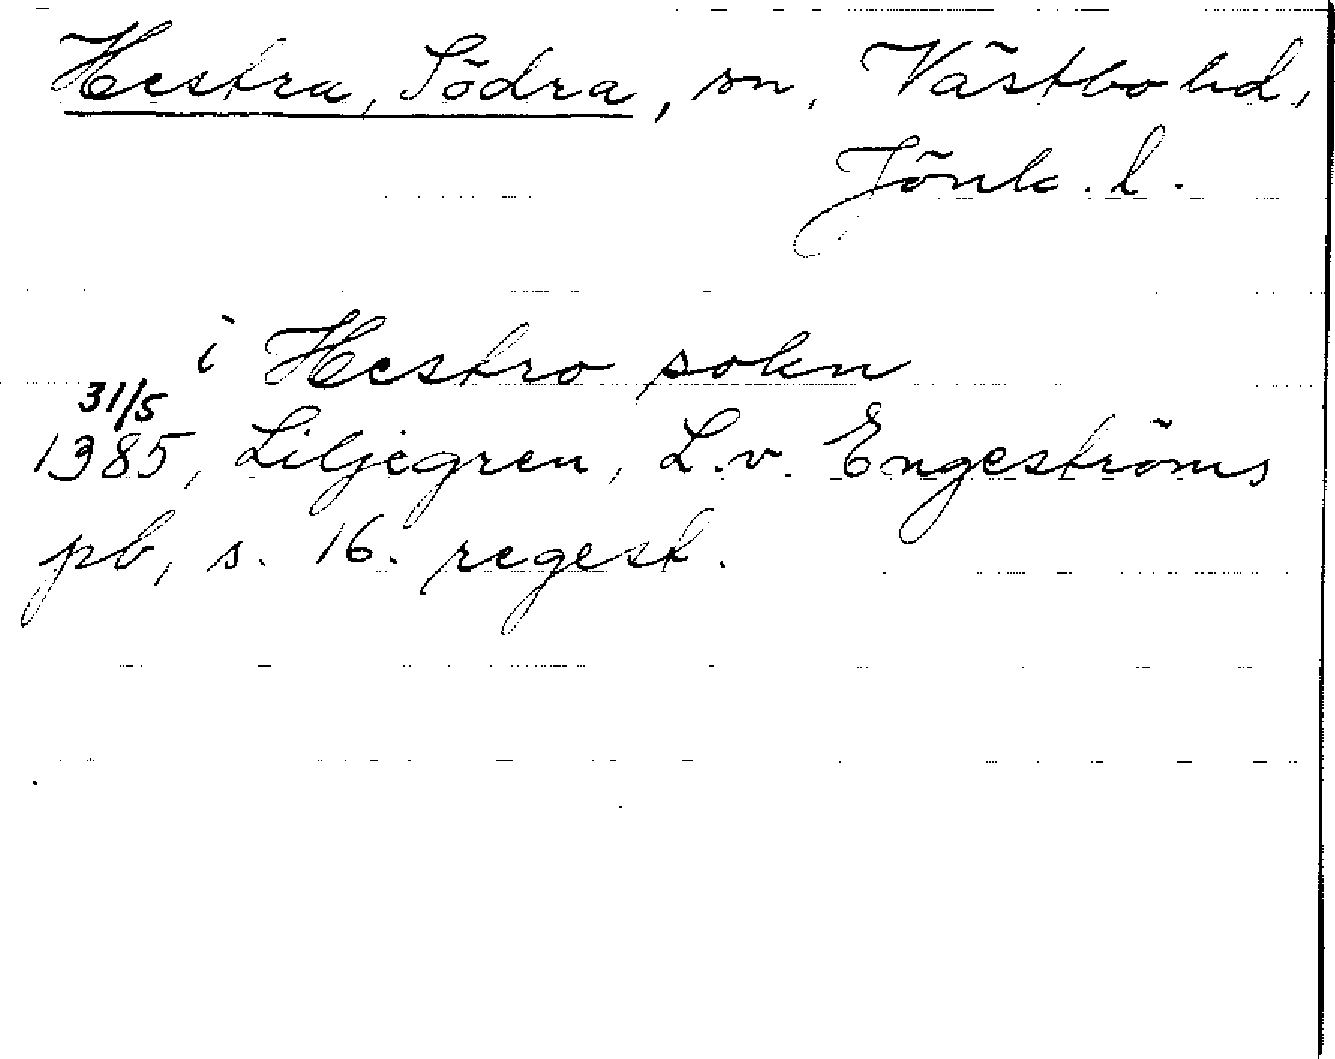 Hestra, Södra, sn, Västbo hd,
Jönk. l.
i Hestro sokn
31/5
1385, Liljegren, L.v. Engeströms
pb, s. 16. regest.